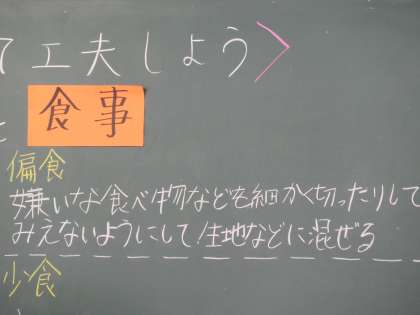 て工夫しよう>
食事
偏食
嫌いな食べ物などを細かく切ったりして
みえないようにして生地などに混ぜる
少食